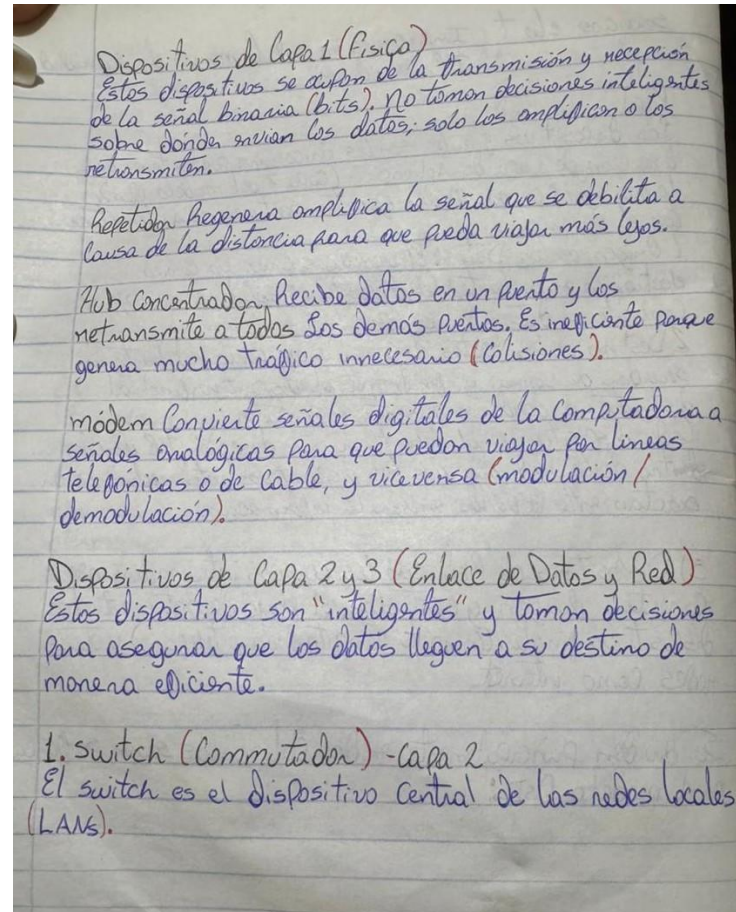 Dispositivos de Capa 1 (Física)
Estos dispositivos se ocupan de la transmisión y recepción
de la señal binaria (bits). no toman decisiones inteligentes
sobre dónde envian los datos; solo los amplifican o los
retransmiten.
Repetidor Regenera amplifica la señal que se debilita a
causa de la distancia para que pueda viajar más lejos.
Hub Concentrador, Recibe datos en un puerto y los
retransmite a todos los demás puertos. Es ineficiente porque
genera mucho tráfico innecesario (Colisiones).
módem Convierte señales digitales de la Computadora a
señales analógicas para que puedan viajar por lineas
telefónicas o de cable, y viceversa (modulación /
demodulación).
Dispositivos de Capa 2 y 3 (Enlace de Datos y Red)
Estos dispositivos son "inteligentes" y toman decisiones
para asegurar que los datos lleguen a su destino de
manera eficiente.
1. Switch (Conmutador) - Capa 2
El switch es el dispositivo central de las redes locales
(LANs).